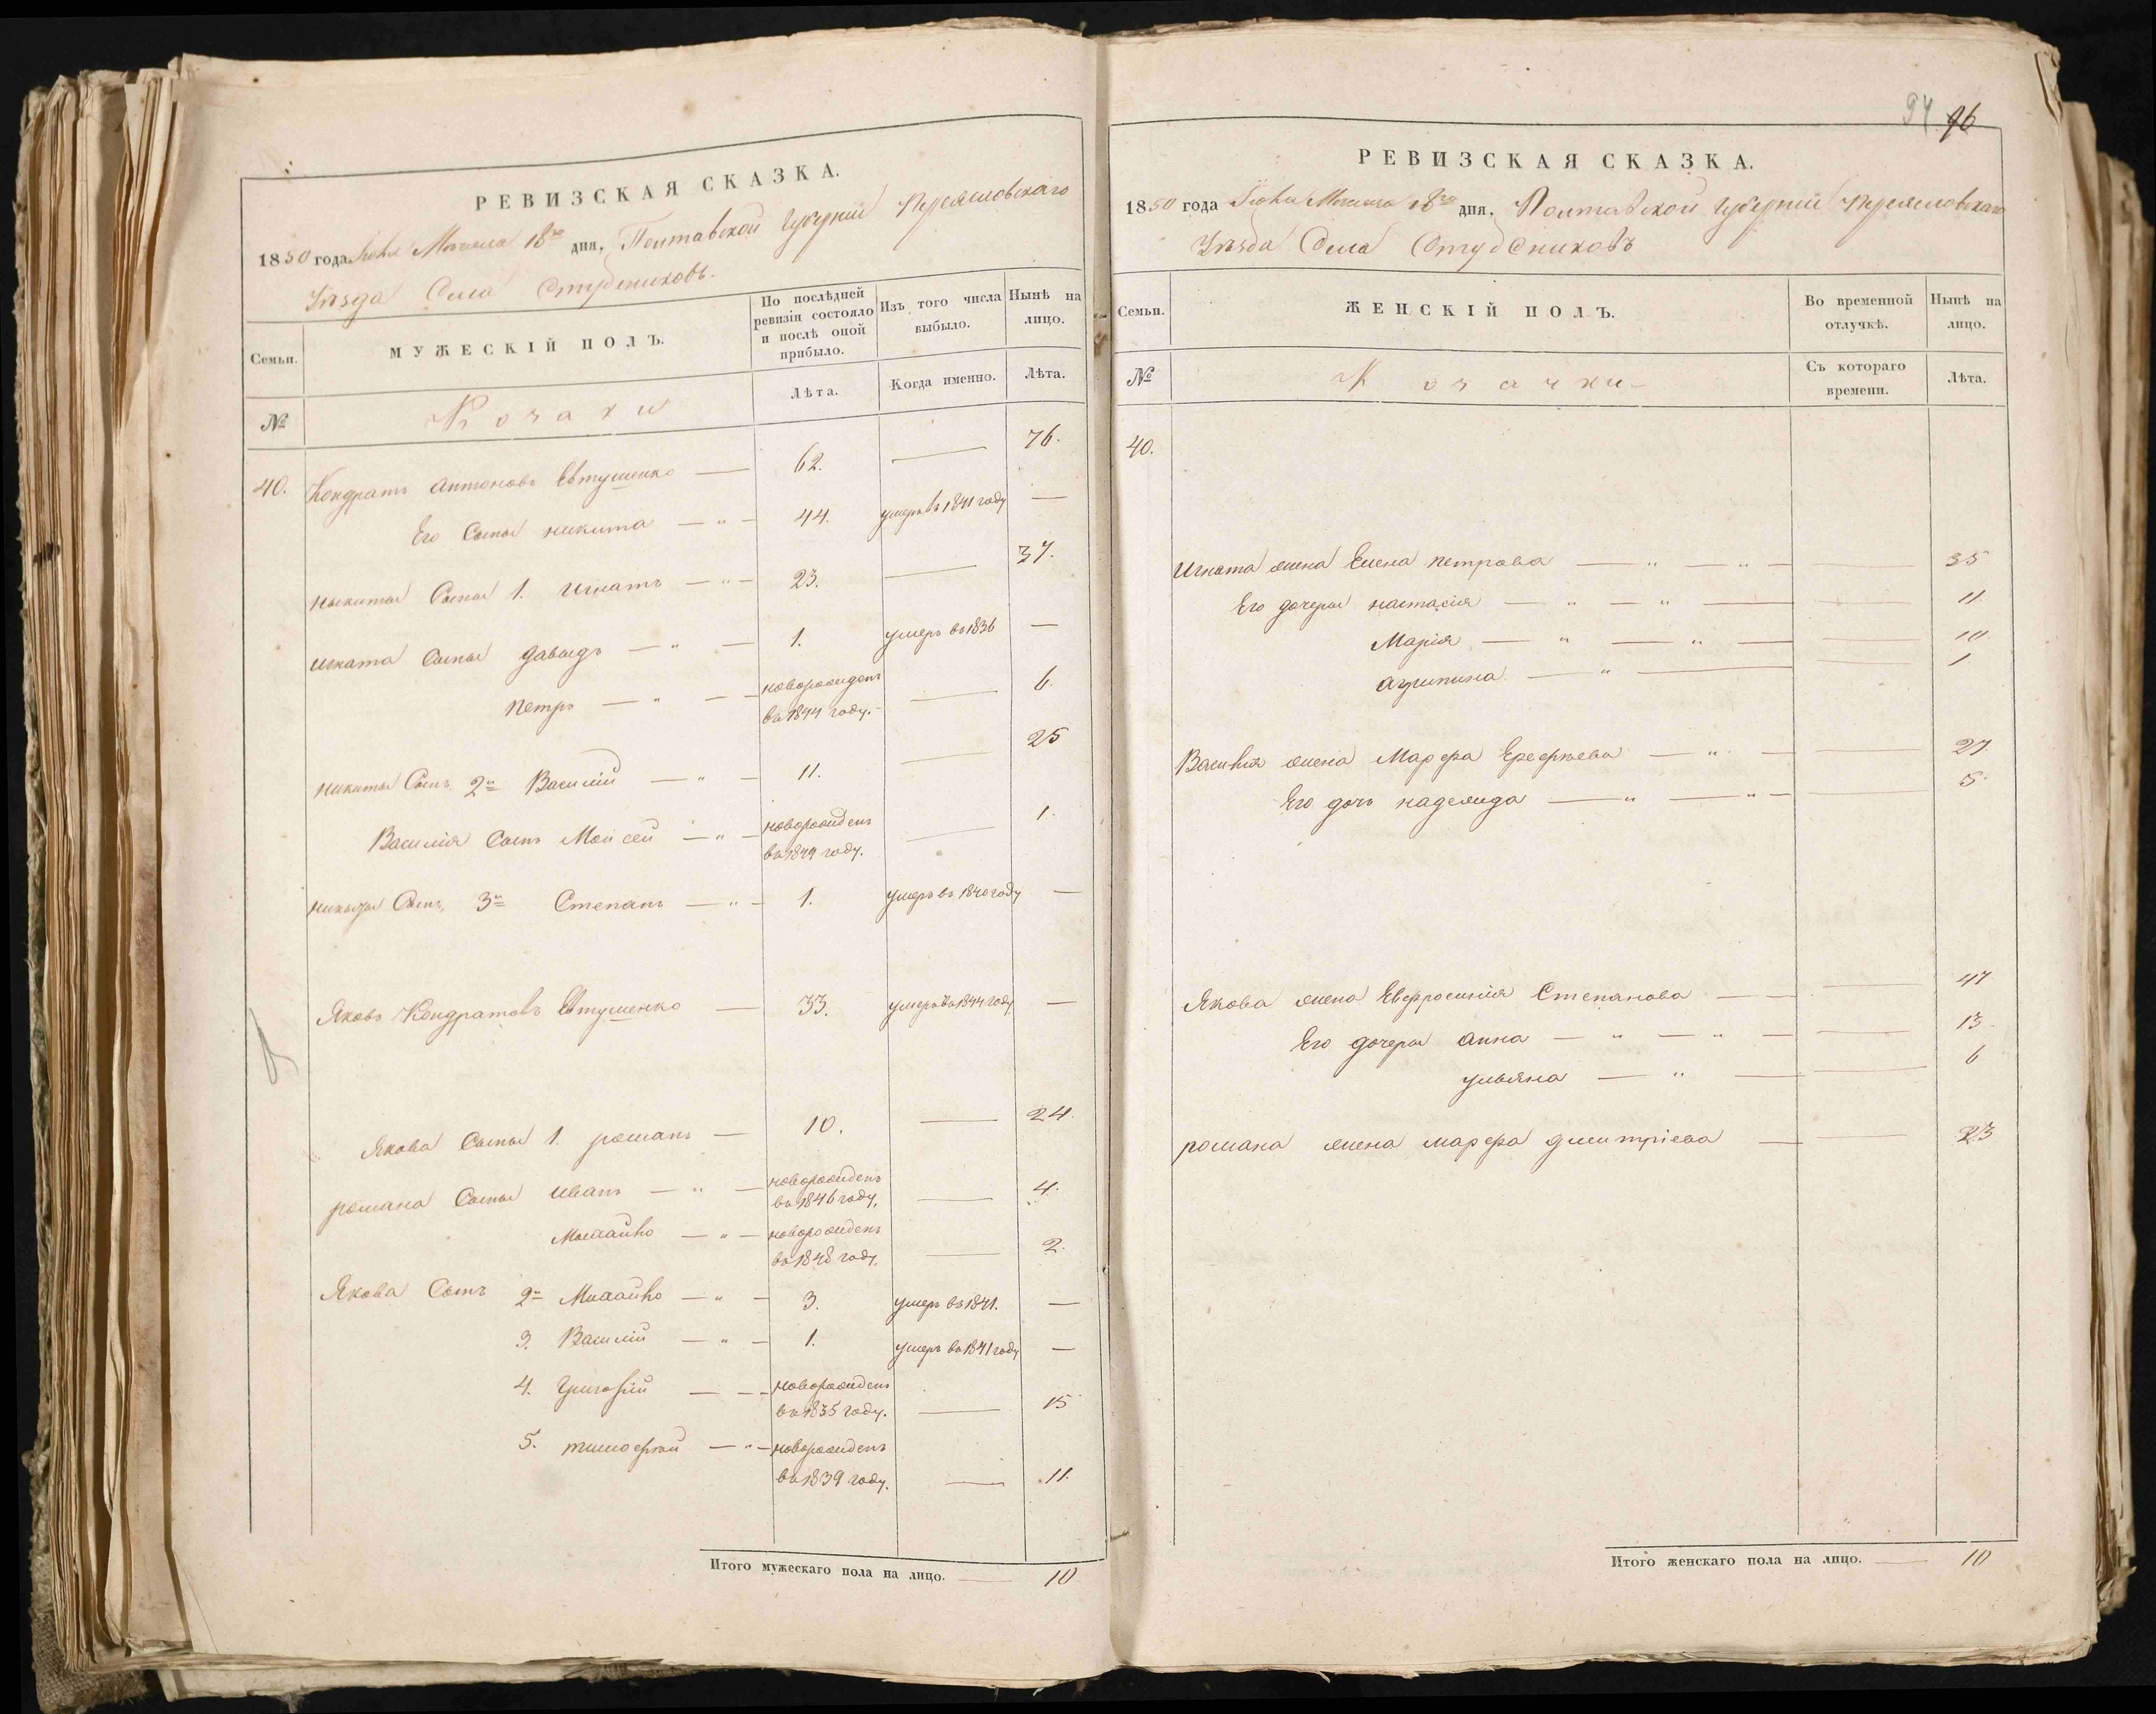 РЕВИЗСКАЯ СКАЗКА.
1850 года Мѣсяца 18го дня, Полтавской Губерніи Переясловскаго
Уѣзда Села Студениковъ.
Семьи.
МУЖЕСКІЙ ПОЛЪ.
По послѣдней ревизіи состояло и послѣ оной прибыло.
Изъ того числа выбыло.
Нынѣ на лицо.
№
Козаки
Лѣта.
Когда именно.
Лѣта.
40. Кондратъ Антоновъ Евтушенко — 62. — 76.
Его Сыны Никита — " — 44. умеръ въ 1841 году —
Никиты Сыны 1. Игнатъ — " — 23. — 37.
Игната Сыны Давыдъ — " — 1. умеръ въ 1836 —
Петръ — " — новорожденъ
въ 1844 году. — 6.
Никиты Сынъ 2й Василій — " — 11. — 25
Василія Сынъ Моисей — " — новорожденъ — 1.
въ 1849 году.
Никиты Сынъ 3й Степанъ — " — 1. умеръ въ 1840 году —
Яковъ Кондратовъ Евтушенко — 33. умеръ въ 1844 году —
Якова Сыны 1. Романъ — 10. — 24.
Романа Сыны Иванъ — " — новорожденъ
въ 1846 году. — 4.
Михайло — " — новорожденъ
въ 1848 году. — 2.
Якова Сынъ 2й Михайло — " — 3. умеръ въ 1841. —
3. Василій — " — 1. умеръ въ 1841 году —
4. Григорій — — новорожденъ
въ 1835 году. — 15
5. Тимофей — " — новорожденъ
въ 1839 году. — 11.
Итого мужескаго пола на лицо. — 10
94 96
РЕВИЗСКАЯ СКАЗКА.
1850 года Мѣсяца 18го дня, Полтавской Губерніи Переясловскаго
Уѣзда Села Студениковъ
Семьи.
ЖЕНСКІЙ ПОЛЪ.
Во временной отлучкѣ.
Нынѣ на лицо.
№
Козачки
Съ котораго времени.
Лѣта.
40.
Игната жена Елена Петрова — " — " — 35
Его дочери Настасія — " — " — 11.
Марія — " — " — 10.
Агрипина — " — 1
Василія жена Марфа Ерефѣева — " — 27.
Его дочь Надежда — " — " — 5.
Якова жена Евфросинія Степанова — — 47
Его дочери Анна — " — " — 13.
Ульяна — " — 6
Романа жена Марфа Дмитріева — — 23
Итого женскаго пола на лицо. — 10